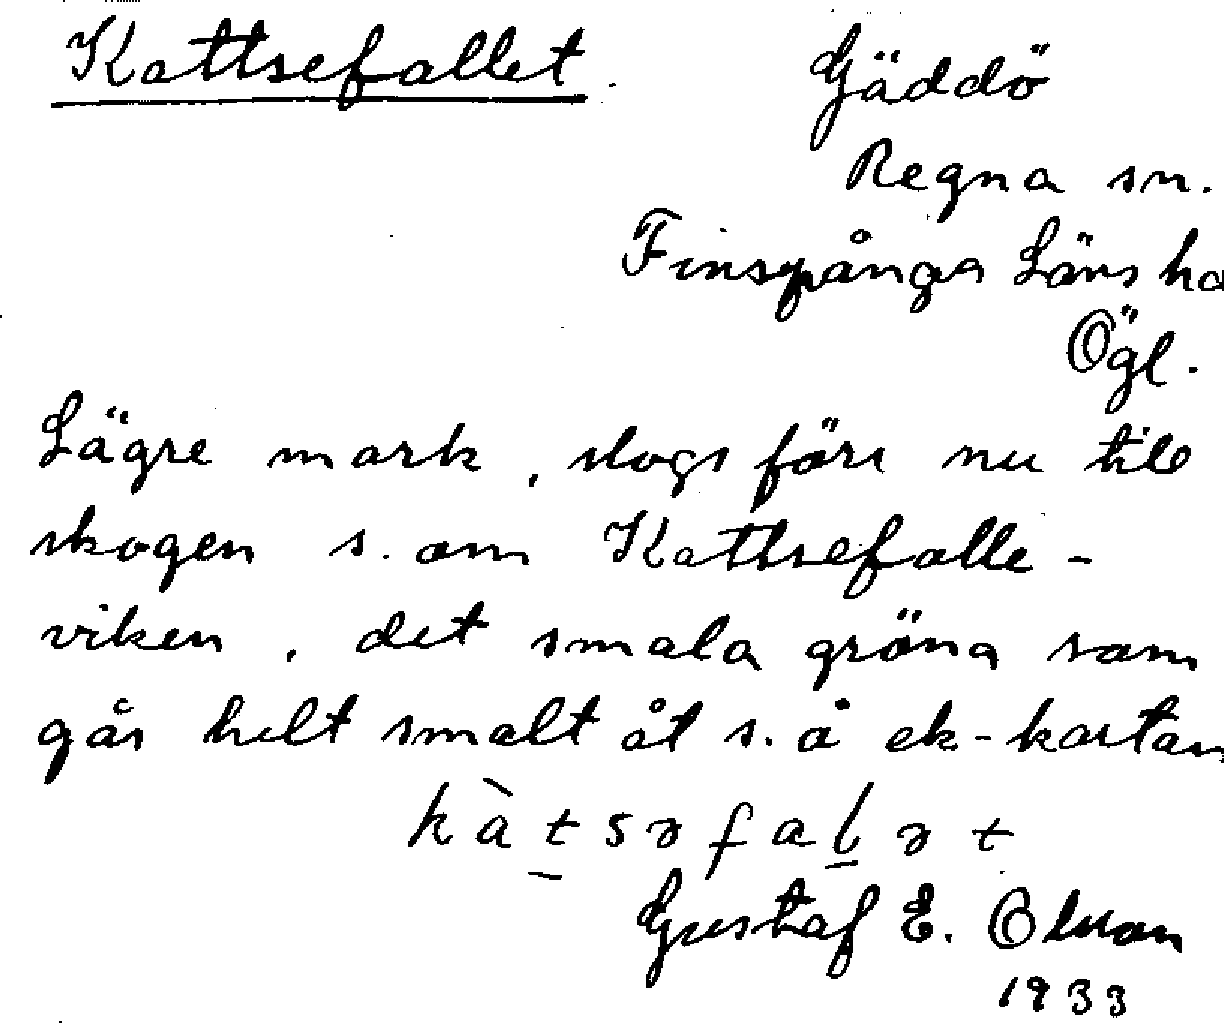 Kattsefallet.
Gäddö
Regna sn.
Finspånga Läns hd
Ögl.
Lägre mark, slogs förr nu till
skogen s. om Kattsefalle-
viken, det smala gröna som
går helt smalt åt s. å ek-kartan
kàtsəfalət
Gustaf E. Olsson
1933